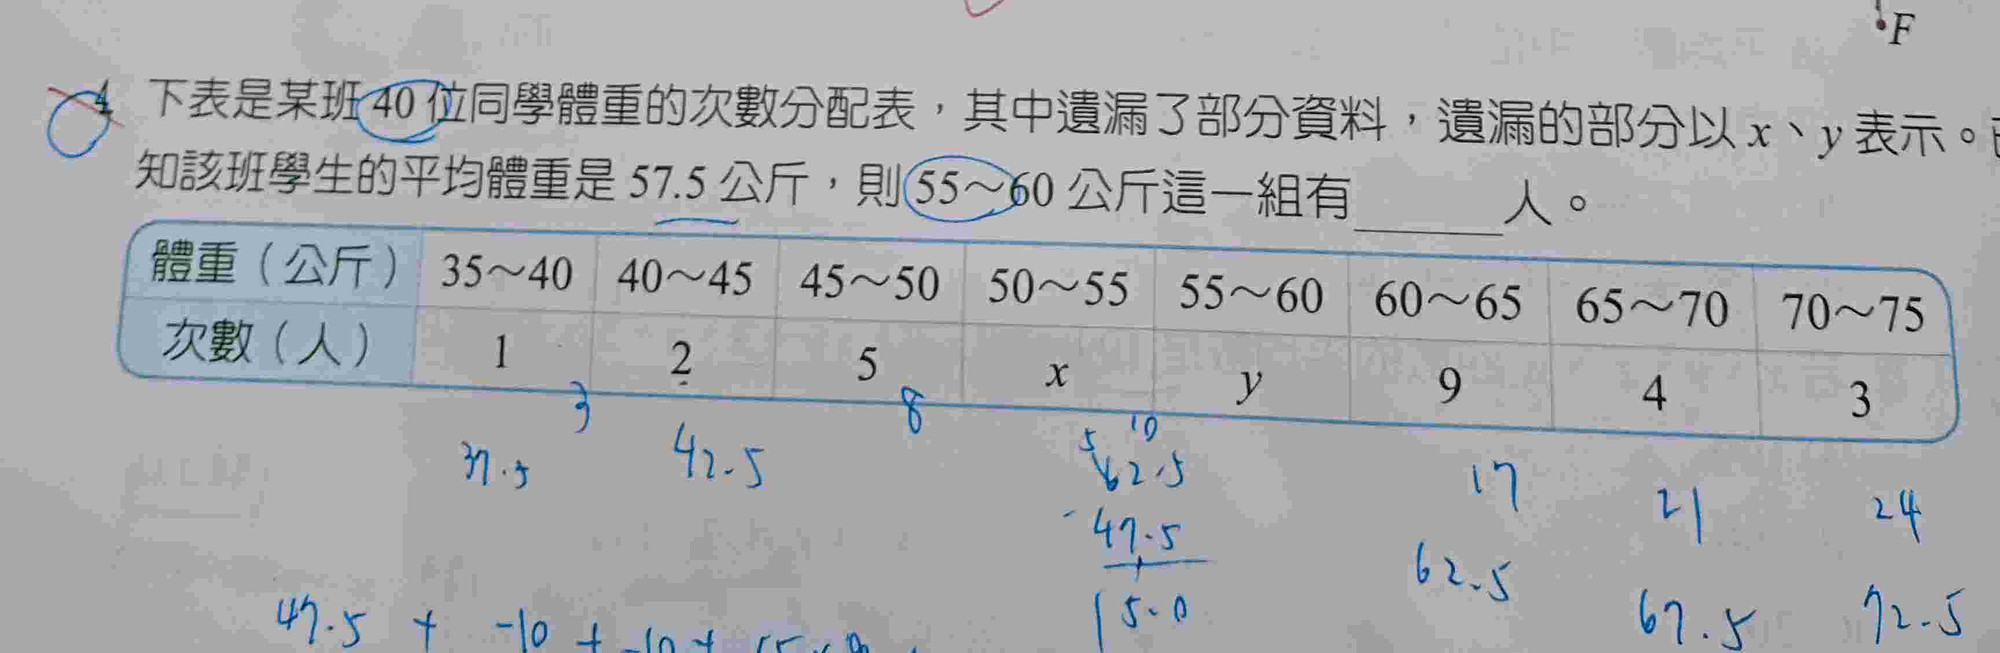 F
4 下表是某班 40 位同學體重的次數分配表，其中遺漏了部分資料，遺漏的部分以 x、y 表示。
知該班學生的平均體重是 57.5 公斤，則 55～60 公斤這一組有______人。
體重（公斤） 35～40 40～45 45～50 50～55 55～60 60～65 65～70 70～75
次數（人） 1 2 5 x y 9 4 3
3 8
37.5 42.5 5 10 17 21 24
62.5
-47.5 62.5
15.0 67.5 72.5
47.5 + -10 + -10 +